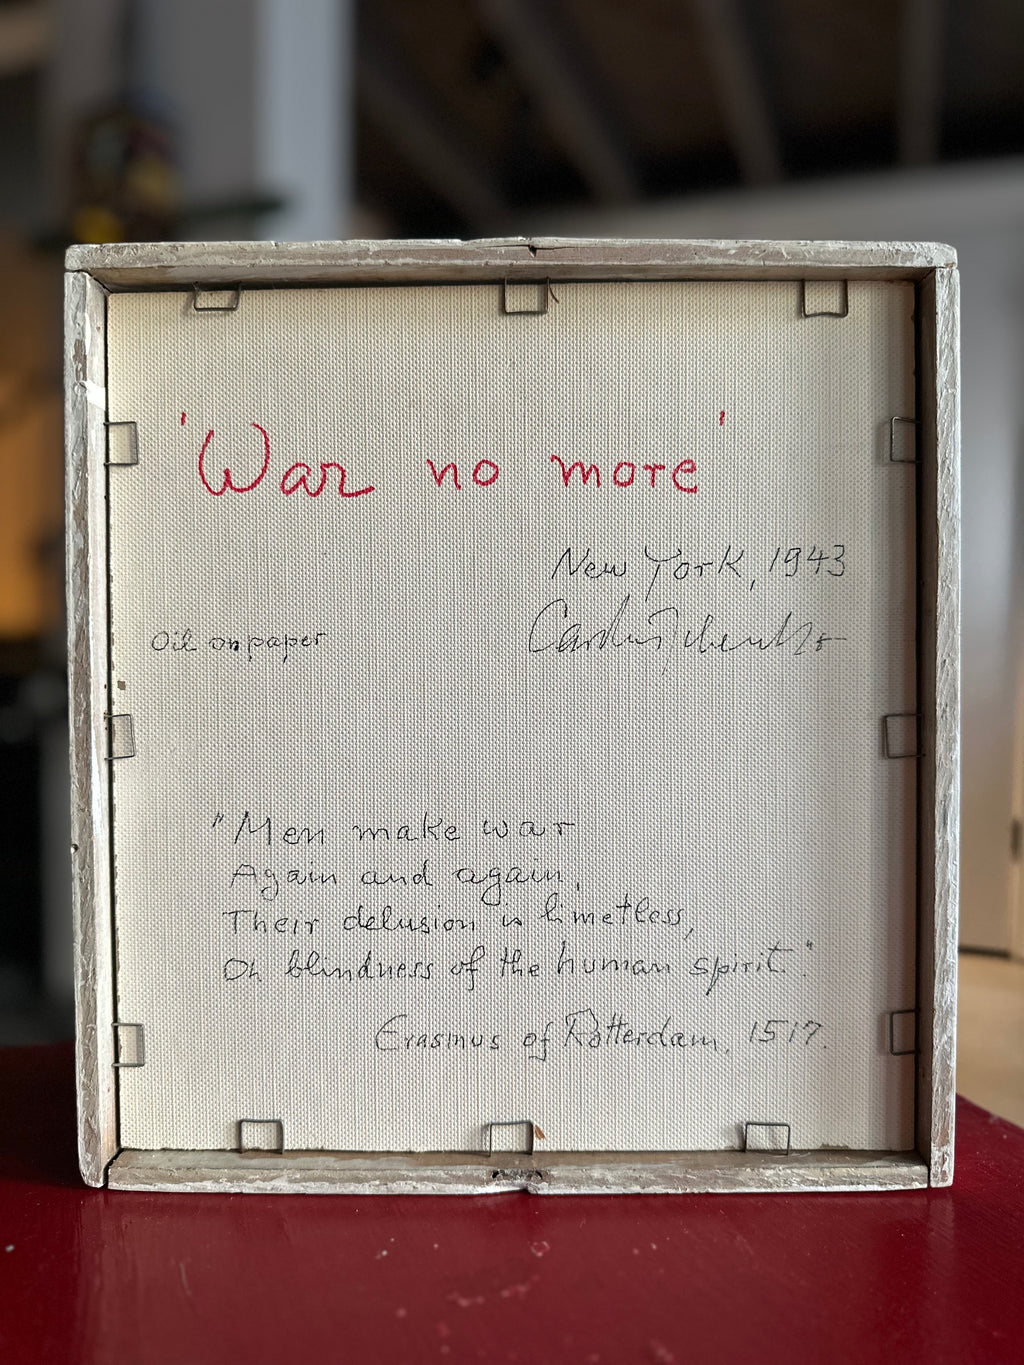 'War no more'
New York, 1943
Oil on paper
"Men make war
Again and again,
Their delusion is limetless,
Oh blindness of the human spirit"
Erasmus of Rotterdam, 1517.